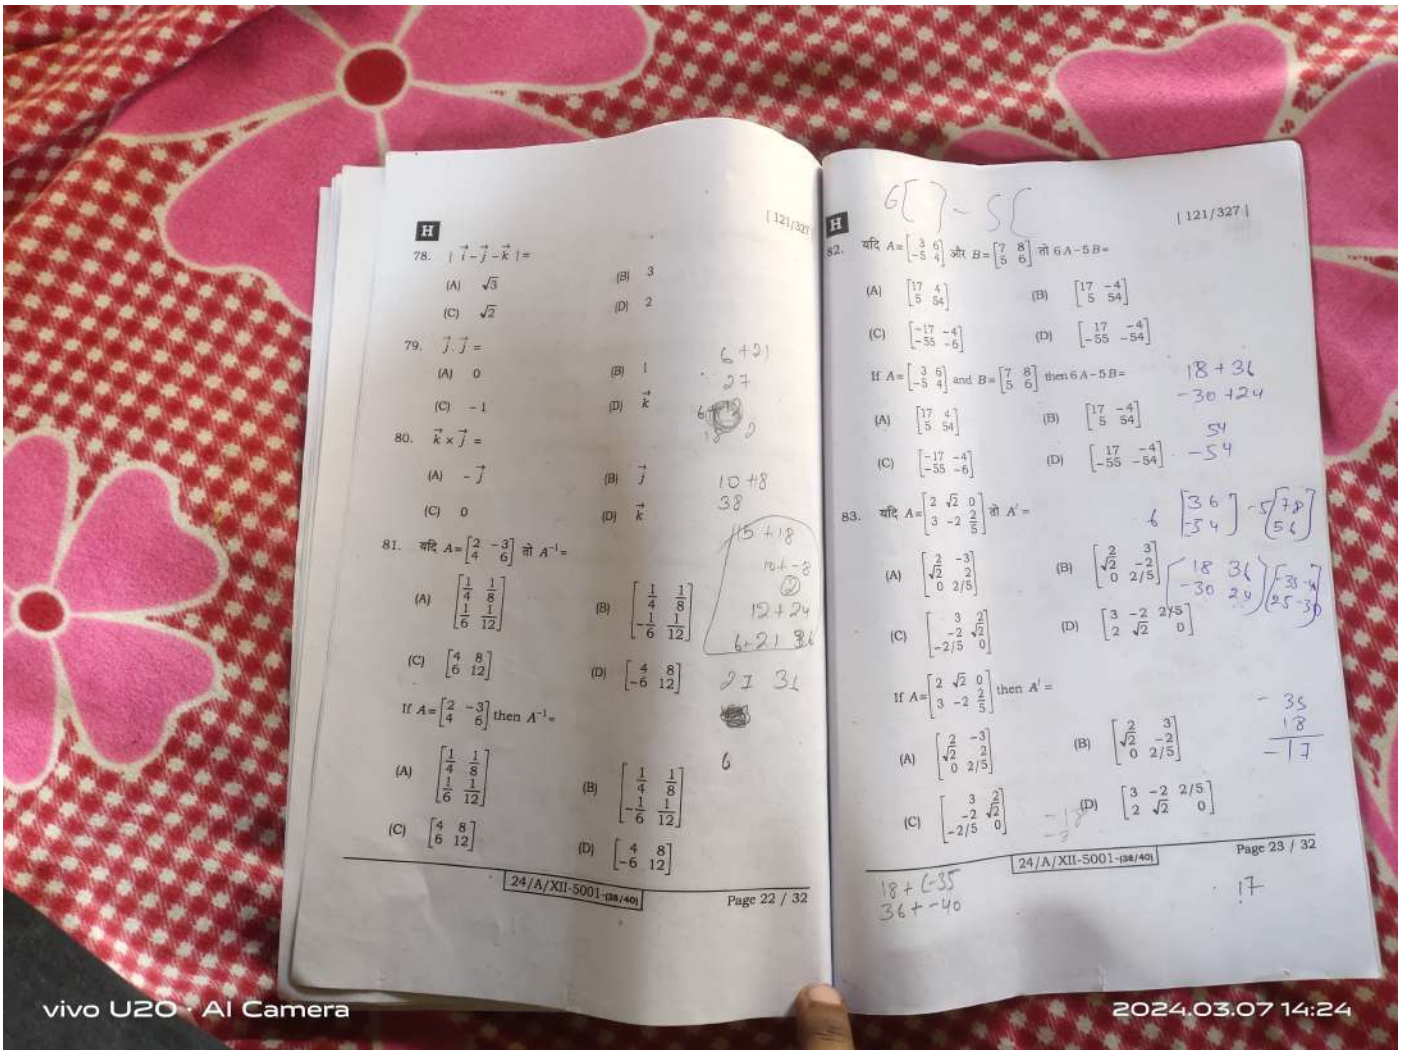 H
[ 121/327
78. | i⃗ - j⃗ - k⃗ | =
(A) √3 (B) 3
(C) √2 (D) 2
79. j⃗ . j⃗ =
(A) 0 (B) 1
(C) -1 (D) k⃗
80. k⃗ × j⃗ =
(A) - j⃗ (B) j⃗
(C) 0 (D) k⃗
81. यदि A = [2 -3; 4 6] तो A⁻¹ =
(A) [1/4 1/8; 1/6 1/12] (B) [1/4 1/8; -1/6 1/12]
(C) [4 8; 6 12] (D) [4 8; -6 12]
If A = [2 -3; 4 6] then A⁻¹ =
(A) [1/4 1/8; 1/6 1/12] (B) [1/4 1/8; -1/6 1/12]
(C) [4 8; 6 12] (D) [4 8; -6 12]
6 + 21
27
10 + 8
38
15 + 18
2
12 + 24
6 + 21
27
6
24/A/XII-5001-(38/40)
Page 22 / 32
6[ ] - 5[
H
[ 121/327 ]
82. यदि A = [3 6; -5 4] और B = [7 8; 5 6] तो 6A - 5B =
(A) [17 4; 5 54] (B) [17 -4; 5 54]
(C) [-17 -4; -55 -6] (D) [17 -4; -55 -54]
If A = [3 6; -5 4] and B = [7 8; 5 6] then 6A - 5B =
(A) [17 4; 5 54] (B) [17 -4; 5 54]
(C) [-17 -4; -55 -6] (D) [17 -4; -55 -54]
18 + 36
-30 + 24
54
-54
83. यदि A = [2 √2 0; 3 -2 2/5] तो A' =
(A) [2 -3; √2 2; 0 2/5] (B) [2 3; √2 -2; 0 2/5]
(C) [3 2; -2 √2; -2/5 0] (D) [3 -2 2/5; 2 √2 0]
If A = [2 √2 0; 3 -2 2/5] then A' =
(A) [2 -3; √2 2; 0 2/5] (B) [2 3; √2 -2; 0 2/5]
(C) [3 2; -2 √2; -2/5 0] (D) [3 -2 2/5; 2 √2 0]
6 [3 6; -5 4] - 5 [7 8; 5 6]
[18 36; -30 24]
- 35
18
- 17
24/A/XII-5001-(38/40)
Page 23 / 32
18 + (-35
36 + -40
17
vivo U20 · AI Camera
2024.03.07 14:24